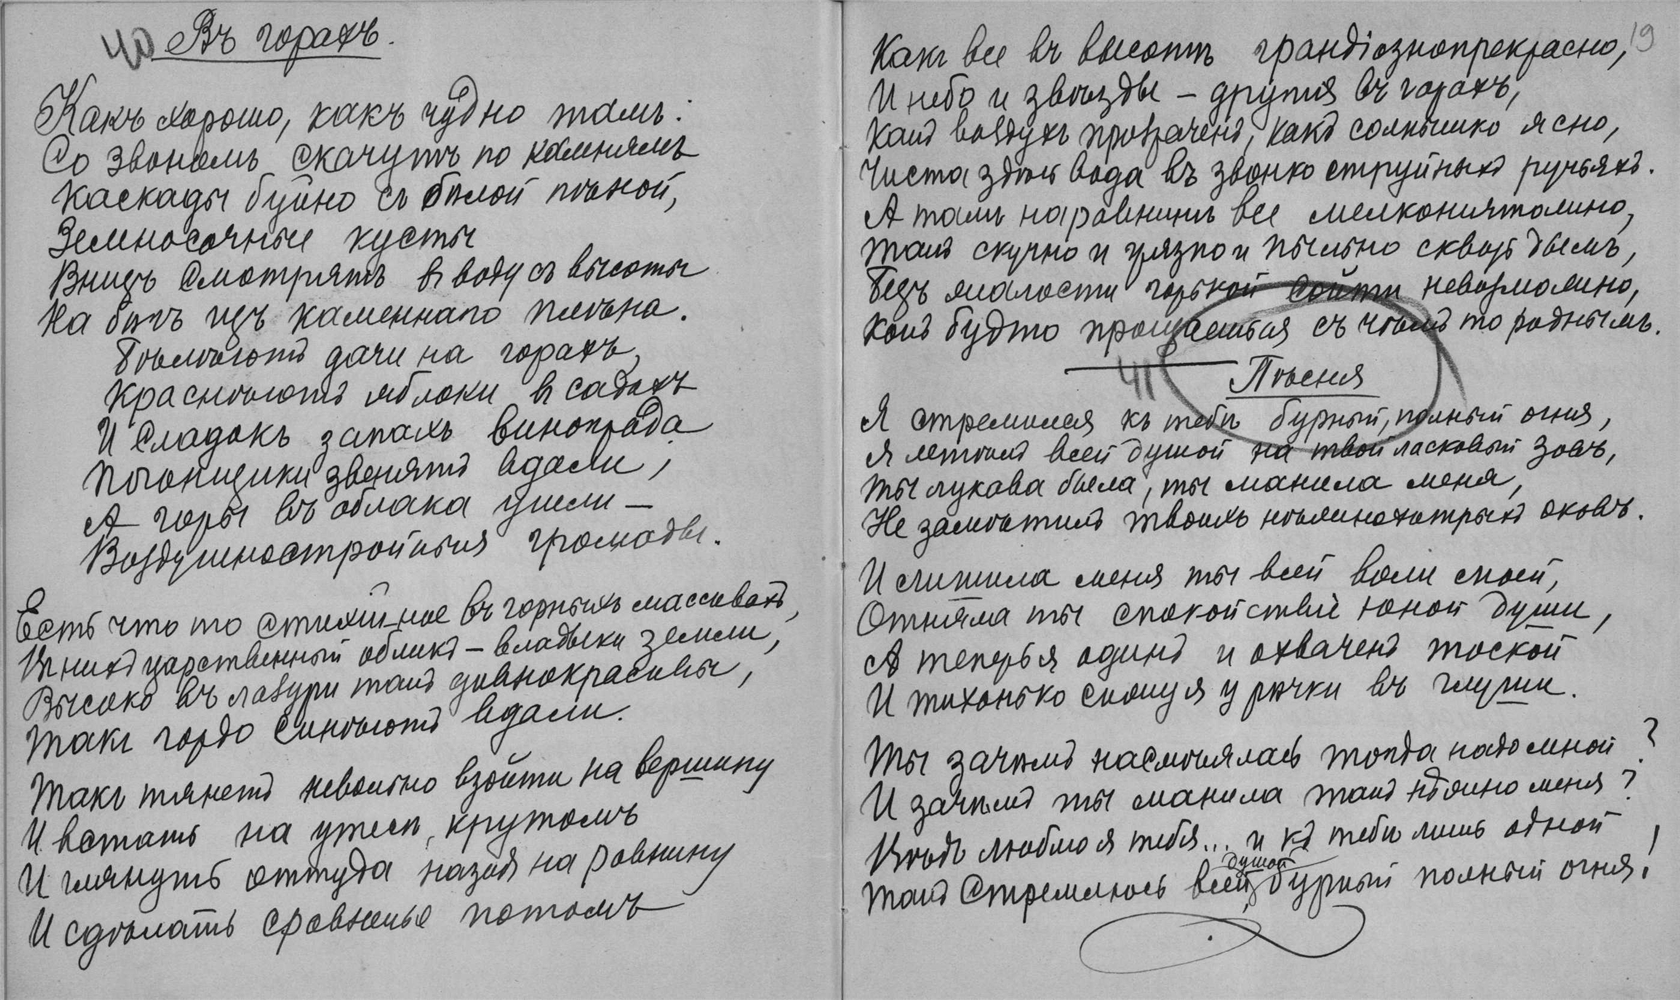 40 Въ горахъ.
Какъ хорошо, какъ чудно тамъ:
Со звономъ скачутъ по камнямъ
Каскады буйно съ бѣлой пѣной,
Земносочные кусты
Внизъ смотрятъ въ воду съ высоты
На бѣгъ изъ каменнаго плѣна.
Бѣлѣютъ дачи на горахъ,
Краснѣютъ яблоки въ садахъ
И сладокъ запахъ винограда
Погонщики звенятъ вдали,
А горы въ облака ушли –
Воздушностройныя громады.
Есть что то стихійное въ горныхъ массивахъ,
Въ нихъ царственный обликъ – владыки земли,
Высоко въ лазури такъ дивнокрасивы,
Такъ гордо синѣютъ вдали.
Такъ тянетъ невольно взойти на вершину
И встать на утесѣ крутомъ
И глянуть оттуда назадъ на равнину
И сдѣлать сравненье потомъ
19
Какъ все въ высотѣ грандіознопрекрасно,
И небо и звѣзды – другія въ горахъ,
Какъ воздухъ прозраченъ, какъ солнышко ясно,
Чиста здѣсь вода въ звонко струйныхъ ручьяхъ.
А тамъ на равнинѣ все мелконичтожно,
Тамъ скучно и грязно и пыльно сквозь дымъ,
Безъ жалости горькой сойти невозможно,
Какъ будто прощаешься съ чѣмъ то роднымъ.
41 Пѣсня
Я стремился къ тебѣ бурный, полный огня,
Я летѣлъ всей душой на твой ласковый зовъ,
Ты лукава была, ты манила меня,
Не замѣтилъ твоихъ нѣжнохитрыхъ оковъ.
И лишила меня ты всей воли моей,
Отняла ты спокойствіе юной души,
А теперь я одинъ и охваченъ тоской
И тихонько стону я у рѣчки въ глуши.
Ты зачѣмъ насмѣялась тогда надо мной?
И зачѣмъ ты манила такъ нѣжно меня?
Вѣдь люблю я тебя... и къ тебѣ лишь одной
Такъ стремлюсь всей душой бурный полный огня!